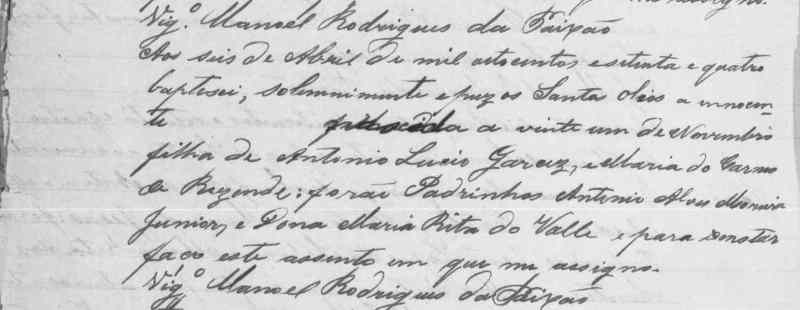 Vigº. Manoel Rodrigues da Paixão
Aos seis de Abril de mil oitocentos e setenta e quatro
baptisei, solemnimente e puz os Santos oleos a innocen-
te nascida a vinte um de Novembro
filha de Antonio Lucio Garcez, e Maria do Carmo
de Rezende: forão Padrinhos Antonio Alves Moreira
Junior, e Dona Maria Rita do Valle e para constar
faço este assento em que me assigno.
Vigº Manoel Rodrigues da Paixão